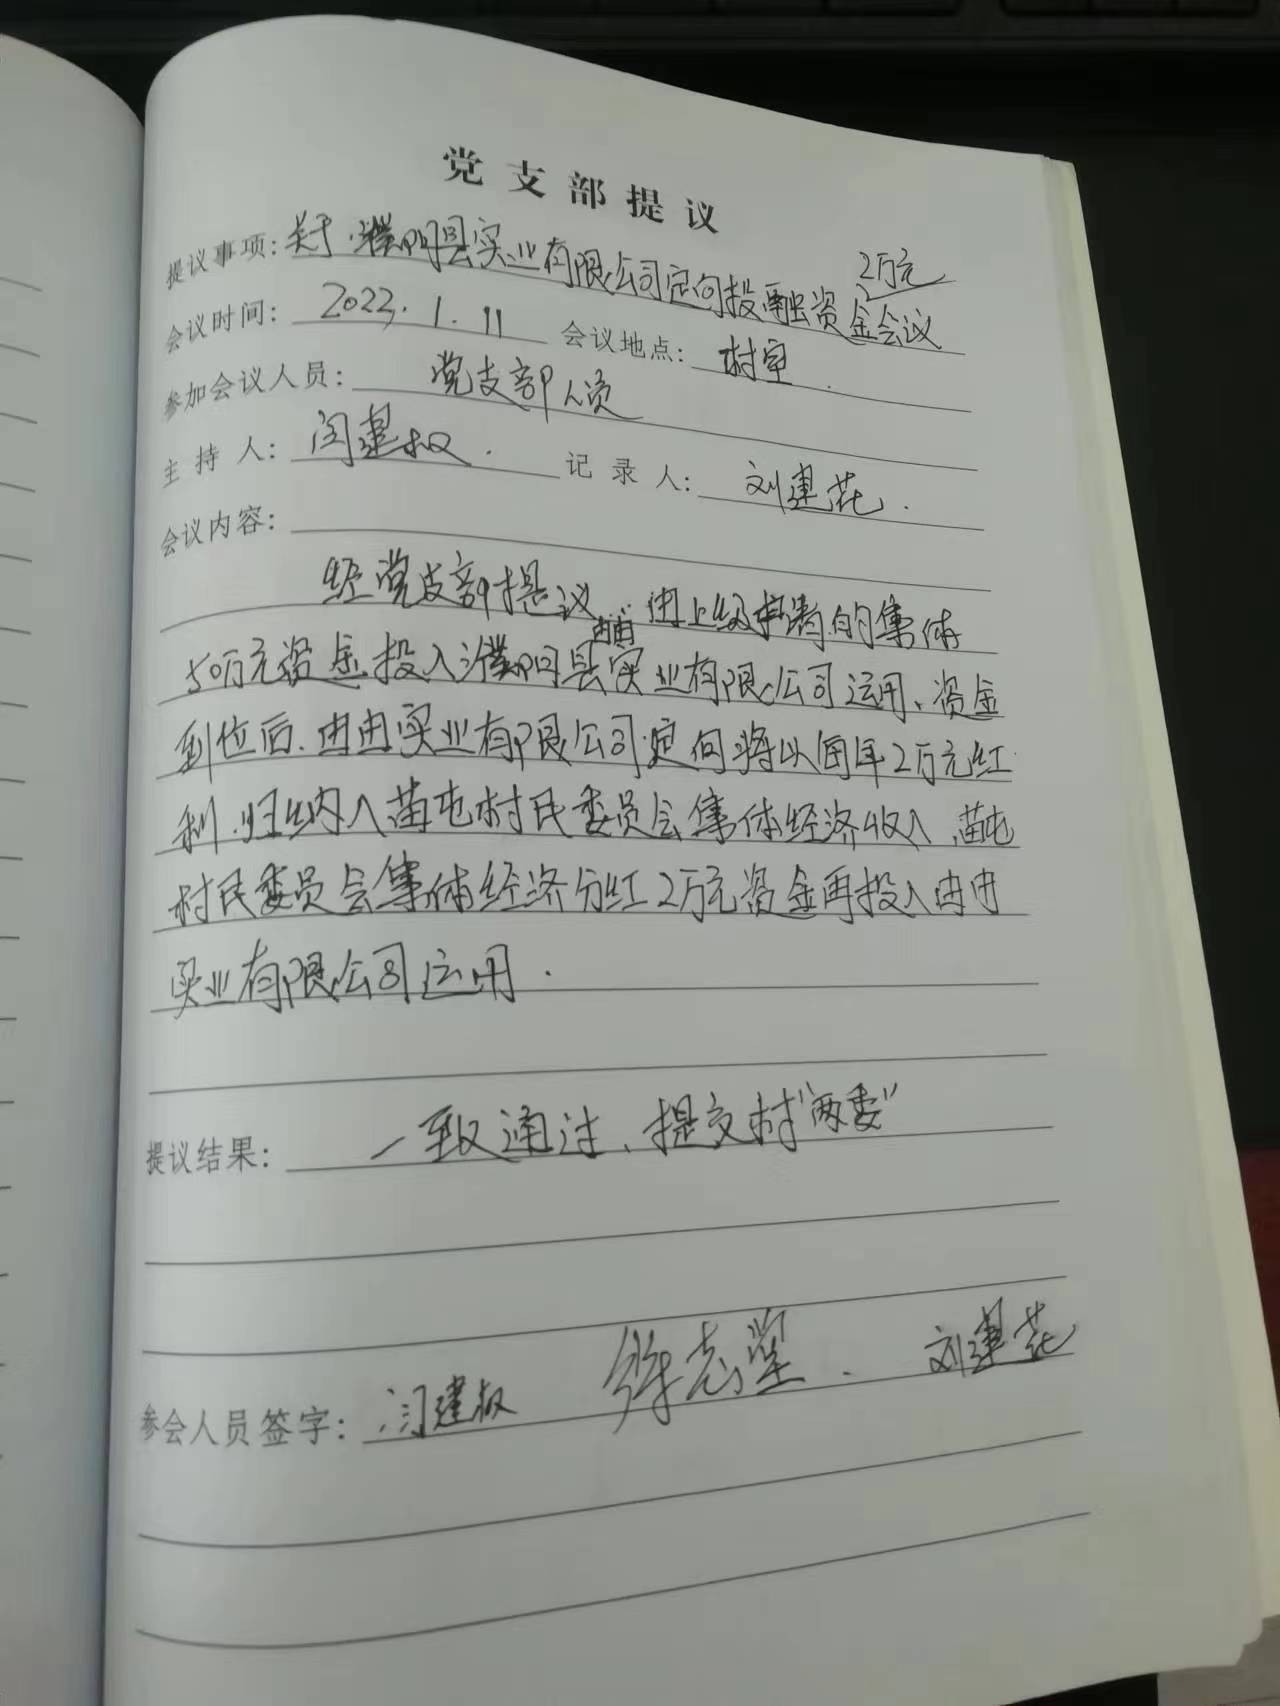 党支部提议
2万元
提议事项: 关于濮阳县实业有限公司定向投融资金会议
会议时间: 2023.1.11 会议地点: 村室.
参加会议人员: 党支部人员
主持人: 闫建叔. 记录人: 刘建花.
会议内容:
经党支部提议, 由上级申请的集体
50万元资金投入濮阳县实业有限公司运用、资金
到位后.由由实业有限公司定向将以每年2万元红
利.归纳入苗屯村民委员会集体经济收入,苗屯
村民委员会集体经济分红2万元资金再投入由由
实业有限公司运用.
提议结果: 一致通过、提交村"两委"
参会人员签字: 闫建叔 徐志堂. 刘建花